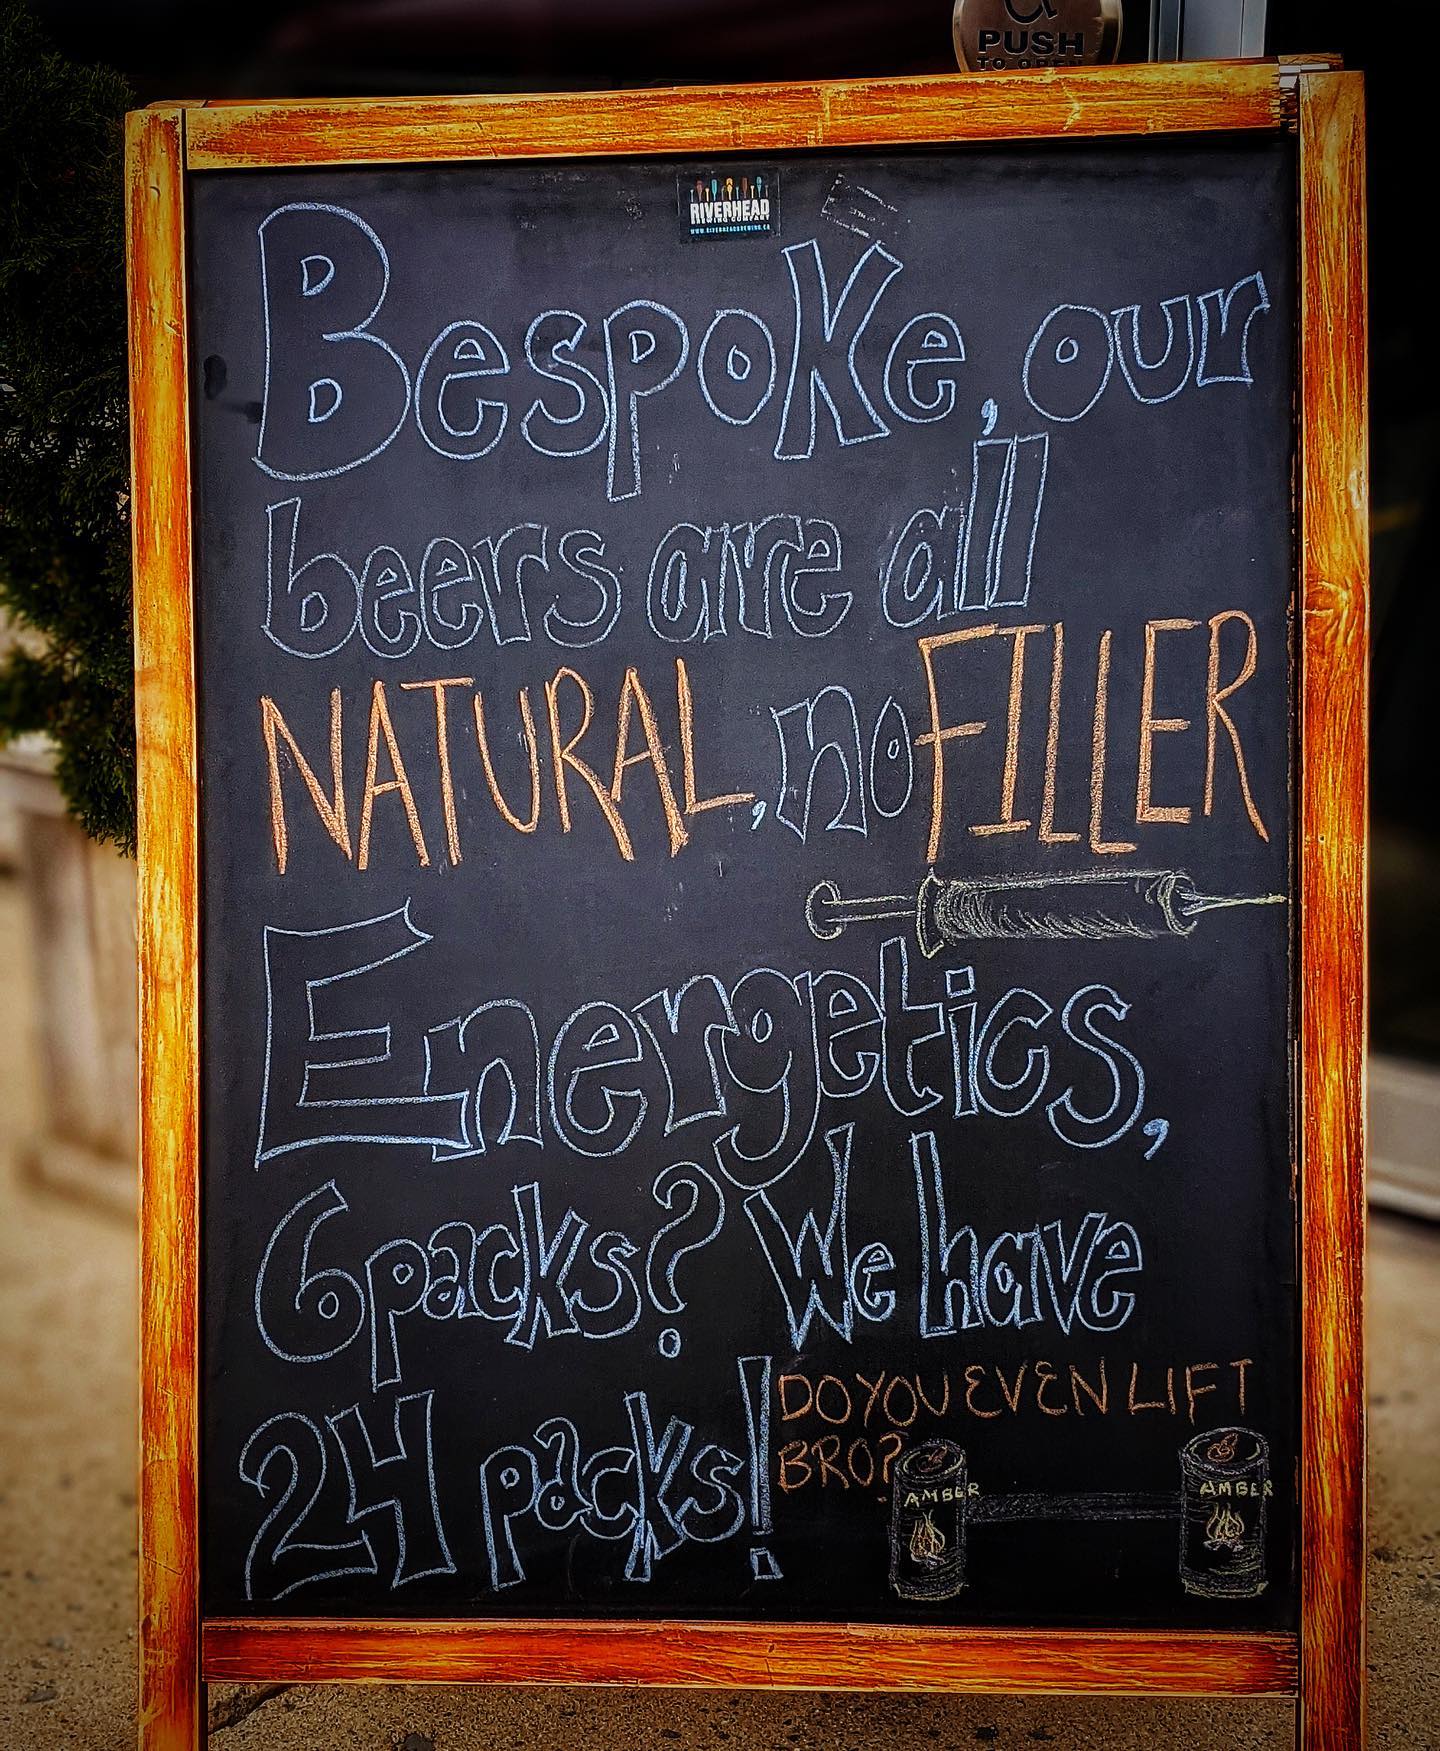 PUSH
TO OPEN
RIVERHEAD
BREWING COMPANY
WWW.RIVERHEADBREWING.CA
Bespoke, our
beers are all
NATURAL, no FILLER
Energetics,
6packs? We have
24 packs!
DO YOU EVEN LIFT
BRO?
AMBER
AMBER